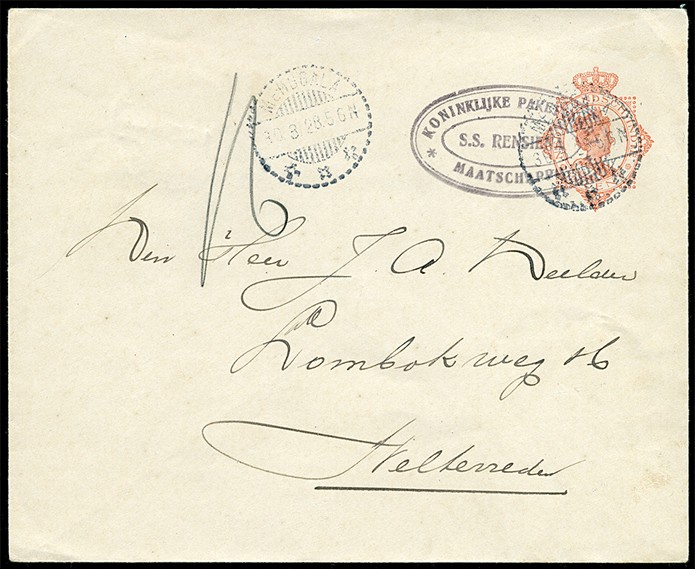 MENGGALA
30.8.28.5-6N
KONINKLIJKE PAKE
S.S. RENSIENA
MAATSCHAPP
16
Den Heer J. A. Deelder
Lombokweg 16
Weltevreden